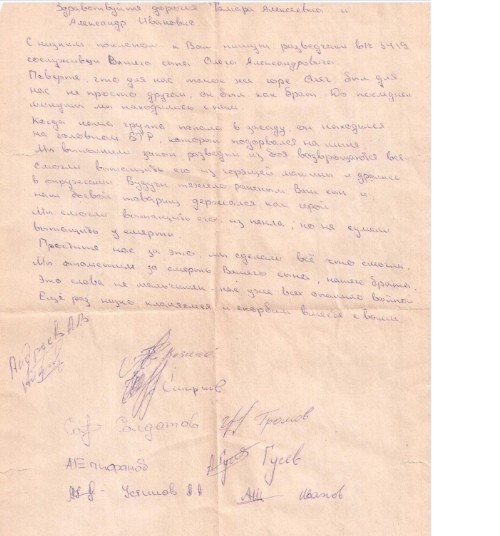 Здравствуйте дорогие Тамара Алексеевна и
Александр Иванович
С низким поклоном к Вам пишут разведчики в/ч 3419
сослуживцы Вашего сына Олега Александровича
Поверьте, что для нас такое же горе Олег был для
нас не просто другом, он был как брат. До последней
минуты мы находились с ним
Когда наша группа попала в засаду он находился
на головном БТР, который подорвался на мине.
Мы выполнили закон разведки из боя возвращаются все
смогли вытащить его из горящей машины и дрались
в окружении Будучи тяжело раненым Ваш сын и
наш боевой товарищ держался как герой
Мы смогли вытащить его из пекла, но не сумели
вытащить у смерти
Простите нас за это, мы сделали всё что смогли.
Мы отомстим за смерть Вашего сына, нашего брата.
Это слова не мальчишек - нас уже всех опалило войной
Ещё раз низко кланяемся и скорбим вместе с вами
Андреев А.В.
Смирнов
Солдатов Громов
Епифанов Гусев
Устинов Иванов